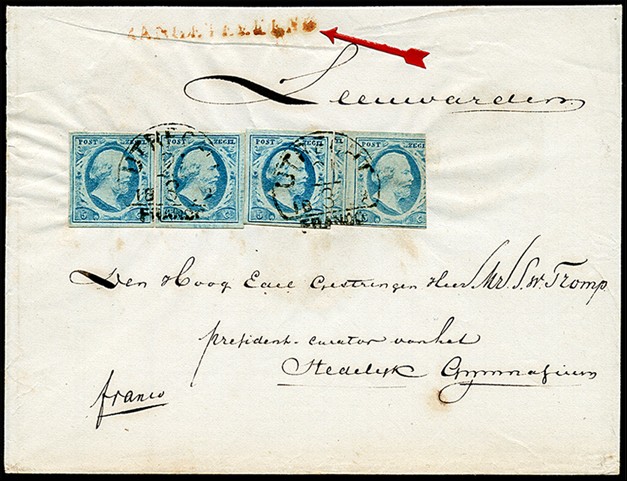 AANGETEEKEND
Leeuwarden
POST ZEGEL POST ZEGEL POST ZEGEL POST ZEGEL
UTRECHT UTRECHT
FRANCO FRANCO
Den Hoog Edel Gestrengen Heer Mr. S. W. Tromp
president-curator van het
Stedelijk Gymnasium
franco